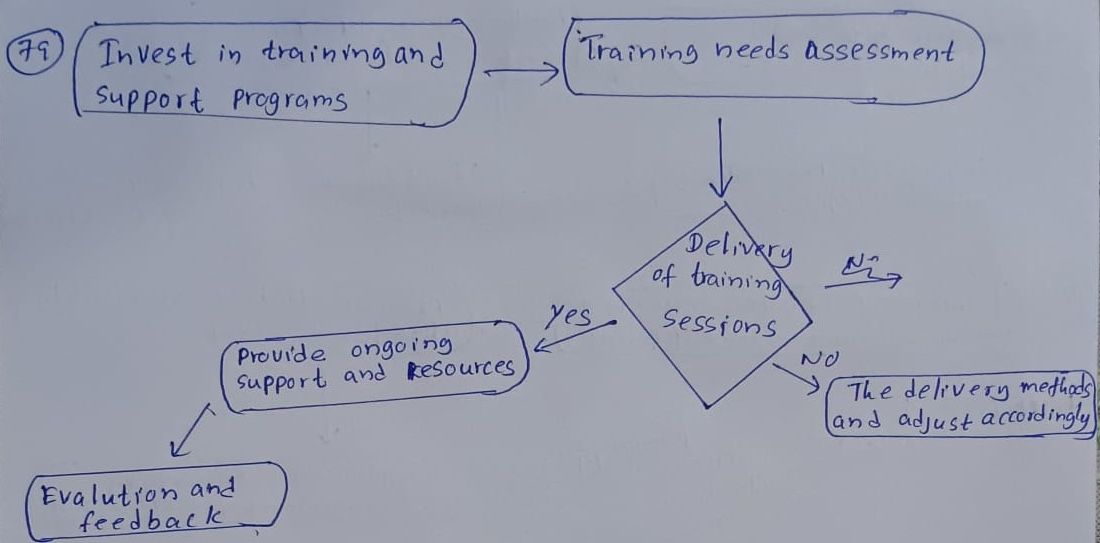 79
Invest in training and
support programs
Training needs assessment
Delivery
of training
sessions
Yes
No
Provide ongoing
support and Resources
The delivery methods
and adjust accordingly
Evalution and
feedback